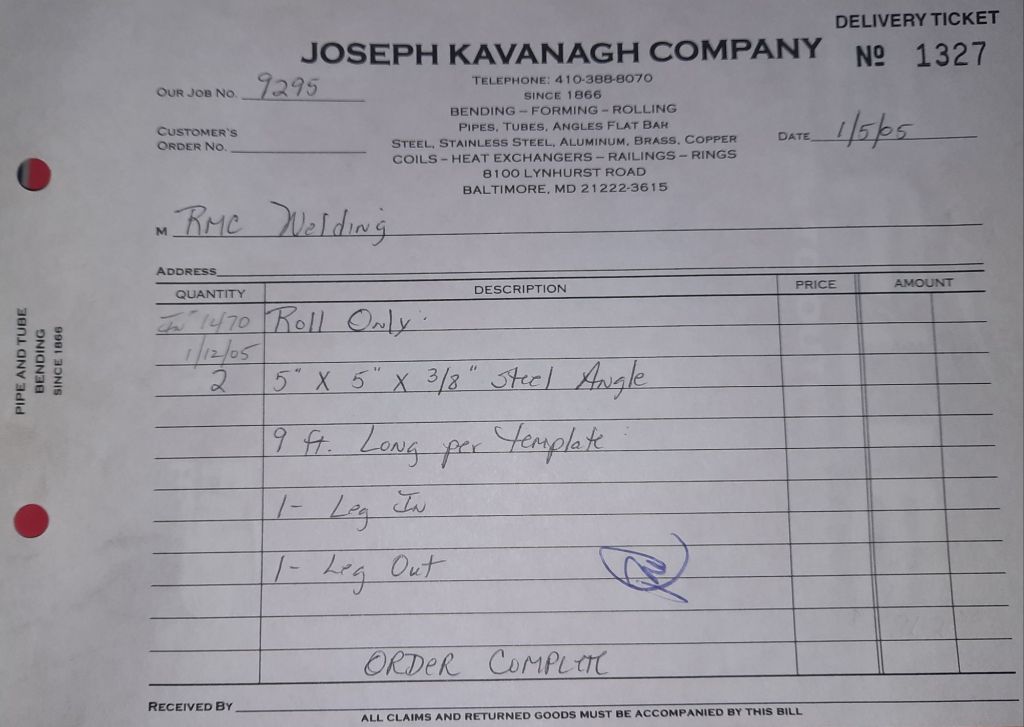 DELIVERY TICKET
JOSEPH KAVANAGH COMPANY
Nº 1327
TELEPHONE: 410-388-8070
OUR JOB NO. 9295
SINCE 1866
BENDING – FORMING – ROLLING
PIPES, TUBES, ANGLES FLAT BAR
CUSTOMER'S
ORDER NO.
DATE 1/5/05
STEEL, STAINLESS STEEL, ALUMINUM, BRASS, COPPER
COILS – HEAT EXCHANGERS – RAILINGS – RINGS
8100 LYNHURST ROAD
BALTIMORE, MD 21222-3615
M RMC Welding
ADDRESS
QUANTITY DESCRIPTION PRICE AMOUNT
1470 Roll Only
1/12/05
2 5" X 5" X 3/8" Steel Angle
9 ft. Long per Template
1- Leg In
1- Leg Out
ORDER COMPLETE
RECEIVED BY
ALL CLAIMS AND RETURNED GOODS MUST BE ACCOMPANIED BY THIS BILL
PIPE AND TUBE
BENDING
SINCE 1866